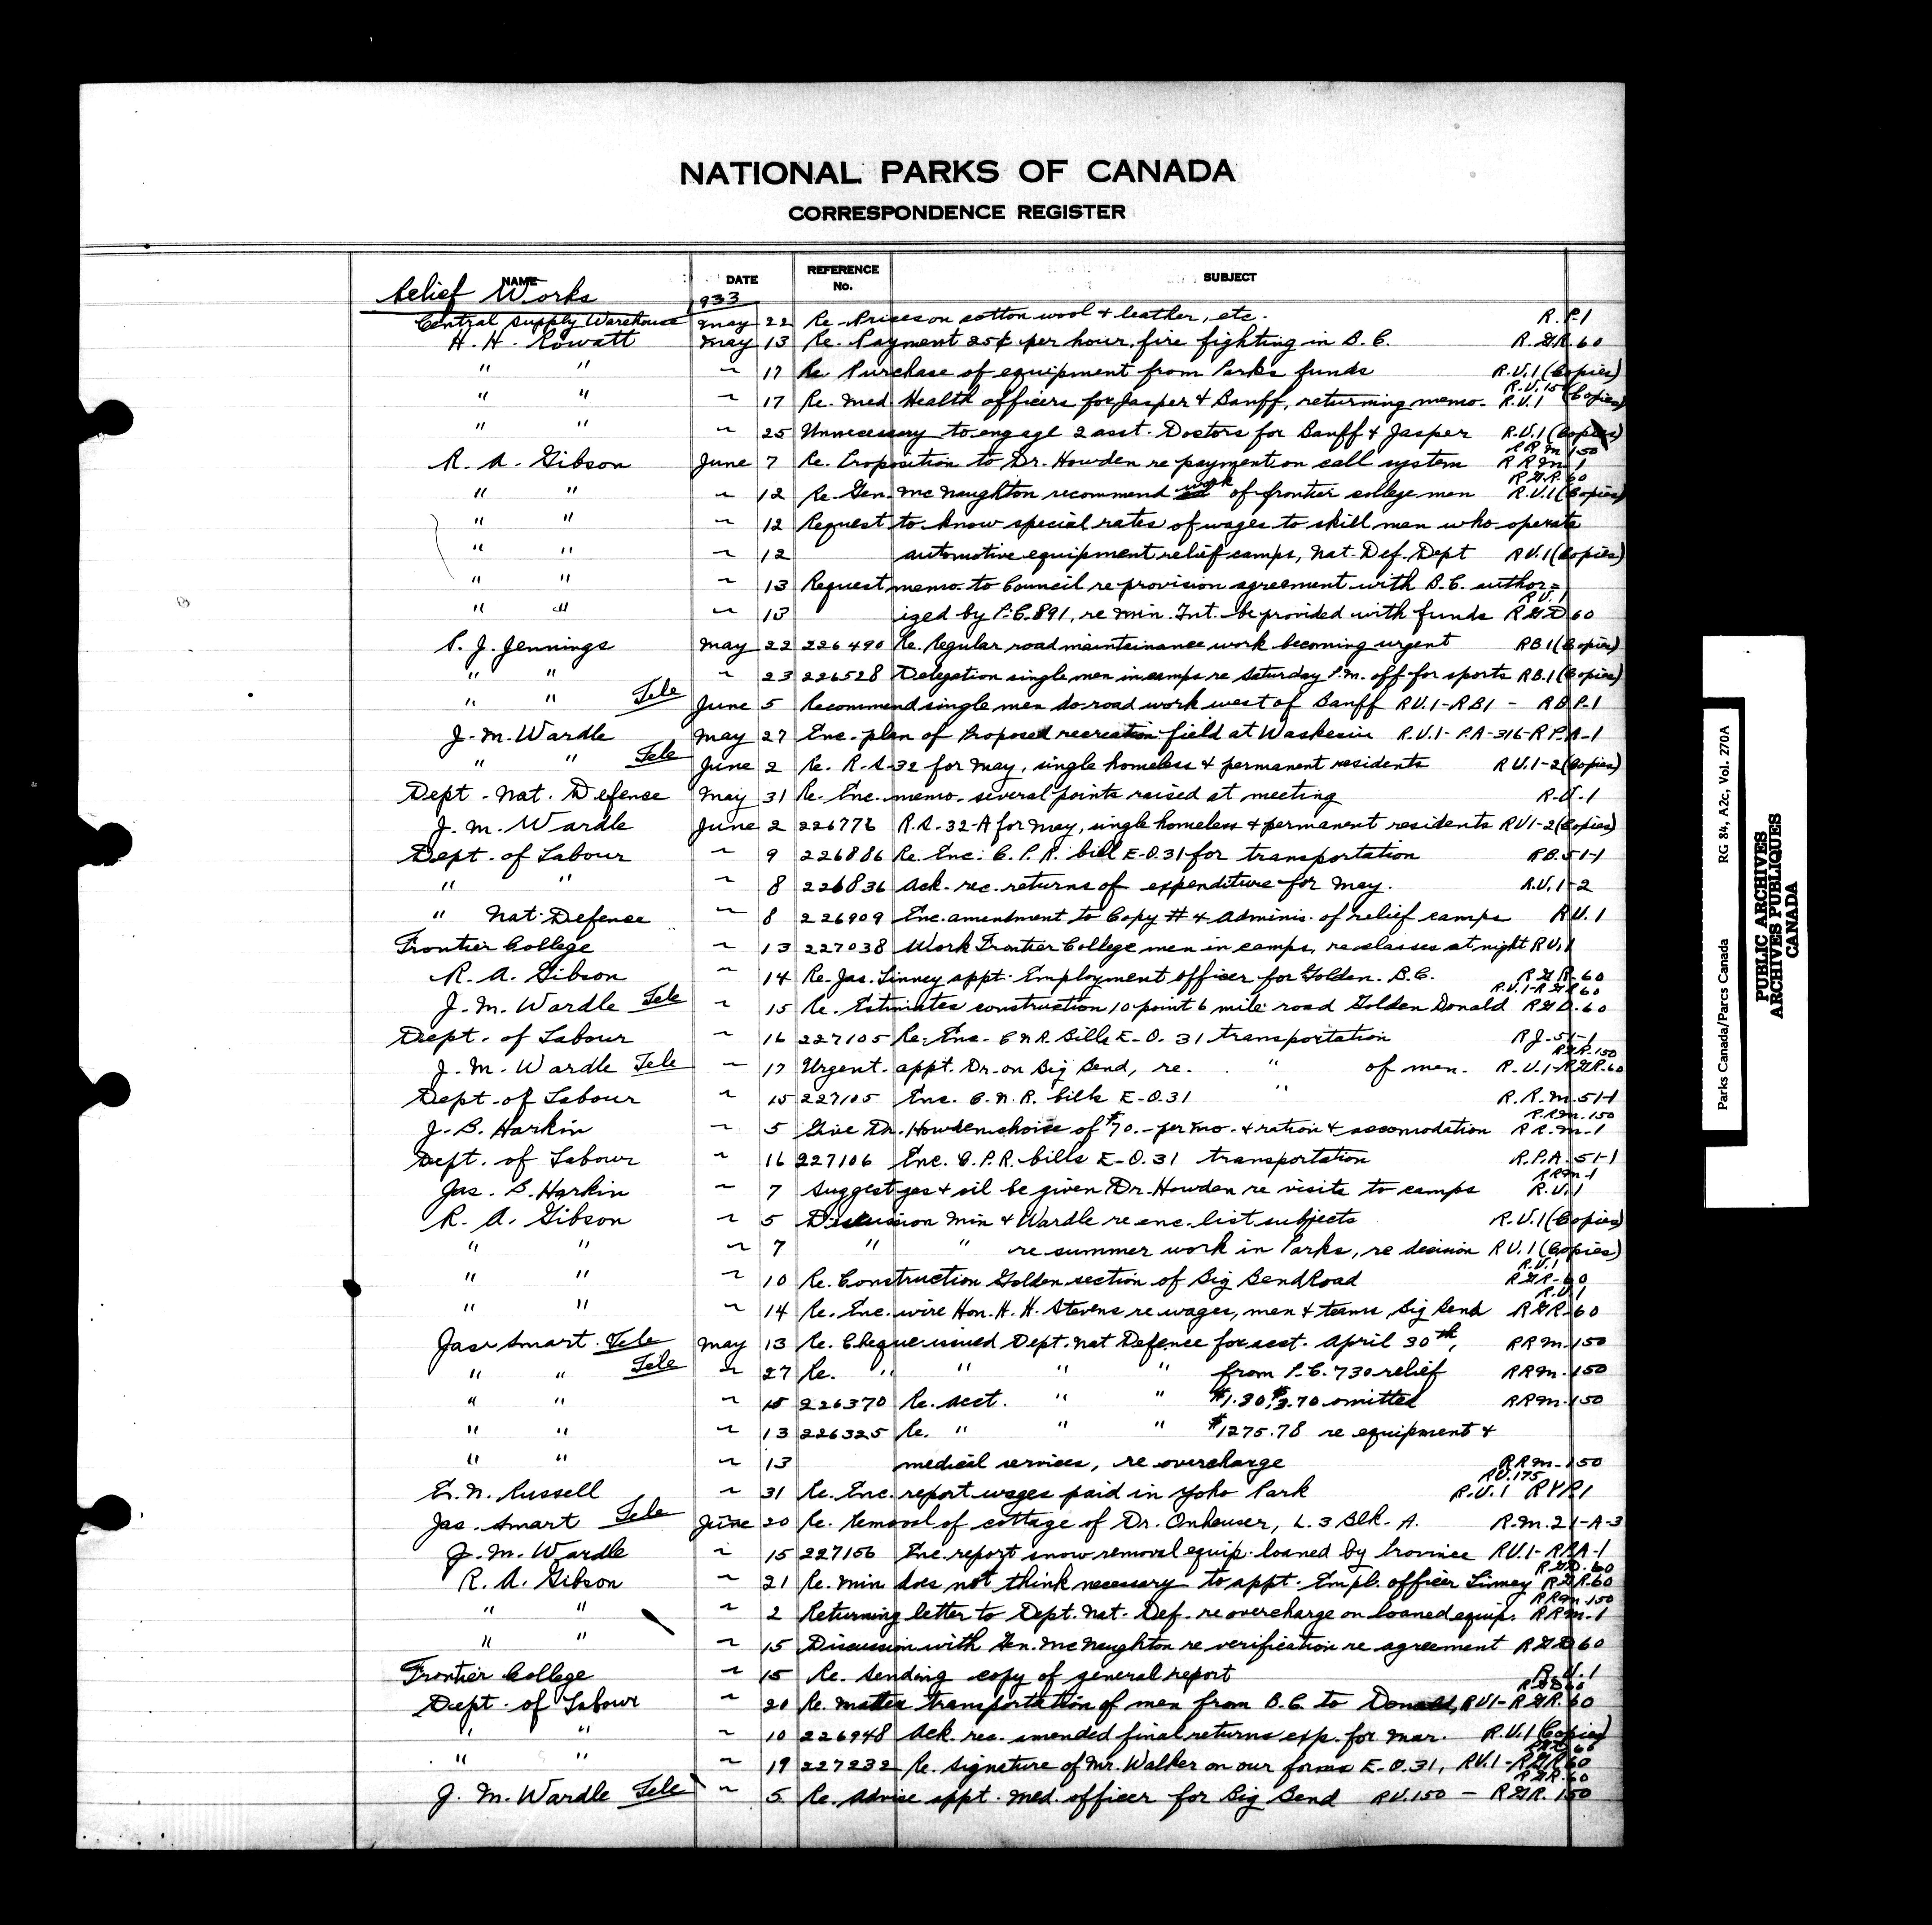 NATIONAL PARKS OF CANADA
CORRESPONDENCE REGISTER
NAME DATE REFERENCE No. SUBJECT
Relief Works 1933
Central Supply Warehouse May 22 Re. Prices on cotton wool & leather, etc. R.P.1
H. H. Rowatt May 13 Re. Payment 25¢ per hour, fire fighting in B.C. R.GR.60
" " ~ 17 Re Purchase of equipment from Parks funds R.V.1 (Copies)
" " ~ 17 Re. Med. Health officers for Jasper & Banff, returning memo. R.V.150 R.V.1 (Copies)
" " ~ 25 Unnecessary to engage 2 asst. Doctors for Banff & Jasper R.V.1 (Copies)
R. A. Gibson June 7 Re. Proposition to Dr. Howden re payment on call system RRM 150 RRM 1
" " ~ 12 Re Gen. McNaughton recommend work of frontier college men R.GR.60 R.V.1 (Copies)
" " ~ 12 Request to know special rates of wages to skill men who operate
" " ~ 12 automotive equipment relief camps, Nat. Def. Dept RV.1 (Copies)
" " ~ 13 Request memo. to Council re provision agreement with B.C. author=
" " ~ 13 ized by P.C. 891, re Min. Int. be provided with funds RV.1 RGD60
P. J. Jennings May 22 226490 Re. Regular road maintainance work becoming urgent RB.1 (Copies)
" " ~ 23 226528 Delegation single men in camps re Saturday P.m. off for sports RB.1 (Copies)
" " Tele June 5 Recommend single men do road work west of Banff RV.1-RB1 - RBP.1
J. M. Wardle May 27 Enc. plan of Proposed recreation field at Waskesiu R.V.1- P.A-316-R.P.A-1
" " Tele June 2 Re. R.S-32 for May, single homeless & permanent residents RV.1-2 (Copies)
Dept. Nat. Defence May 31 Re. Enc. memo. several points raised at meeting R.V.1
J. M. Wardle June 2 226776 R.S. 32-A for May, single homeless & permanent residents RV1-2 (Copies)
Dept. of Labour ~ 9 226886 Re. Enc. C.P.R. bill E-O.31 for transportation RB.51-1
" " ~ 8 226836 Ack. rec. returns of expenditure for May. R.V.1-2
" Nat. Defence ~ 8 226909 Enc. amendment to Copy #4 Adminis. of relief camps RV.1
Frontier College ~ 13 227038 Work Frontier College men in camps, re classes at night RV.1
R. A. Gibson ~ 14 Re. Jas. Linney appt. Employment officer for Golden. B.C. RGR.60
J. M. Wardle Tele ~ 15 Re. Estimates construction 10 point 6 mile road Golden Donald R.V.1-RGR60 RGD.60
Dept. of Labour ~ 16 227105 Re. Enc. C.N.R. Bills E-O. 31 transportation RJ-51-1
J. M. Wardle Tele ~ 17 Urgent. appt. Dr. on Big Bend, re. " of men. RGR.150 R.V.1-RGR.60
Dept. of Labour ~ 15 227105 Enc. C.N.R. bills E-O.31 " R.R.M.51-1
J. B. Harkin ~ 5 Give Dr. Howden choice of $70.- per mo. & ration & accomodation RRM-150 RR.M-1
Dept. of Labour ~ 16 227106 Enc. C.P.R. bills E-O.31 transportation R.P.A.51-1
Jas. B. Harkin ~ 7 Suggest gas & oil be given Dr. Howden re visits to camps RRM-1 R.V.1
R. A. Gibson ~ 5 Discussion Min & Wardle re enc. list subjects R.V.1 (Copies)
" " ~ 7 " " re summer work in Parks, re decision RV.1 (Copies)
" " ~ 10 Re. Construction Golden section of Big Bend Road R.V.1 RGR-60
" " ~ 14 Re. Enc. wire Hon. H. H. Stevens re wages, men & teams, Big Bend R.V.1 RGR-60
Jas Smart. Tele May 13 Re. Cheque issued Dept. Nat Defence for acct. April 30th, RRM.150
" " Tele ~ 27 Re. " " " " from P.C. 730 relief RRM.150
" " ~ 15 226370 Re. acct. " " $1.80, $3.70 omitted RRM.150
" " ~ 13 226325 Re. " " " $1275.78 re equipment &
" " ~ 13 medical services, re overcharge RRM-150
E. N. Russell ~ 31 Re. Enc. report wages paid in Yoho Park RV.175 R.V.1 RYP.1
Jas. Smart Tele June 20 Re. Removal of cottage of Dr. Onhauser, L. 3 Blk. A. R.M.21-A-3
J. M. Wardle ~ 15 227156 Enc. report snow removal equip. loaned by Province RV.1- RPA-1
R. A. Gibson ~ 21 Re. Min does not think necessary to appt. Empl. officer Linney RGD.60 RGR.60
" " ~ 2 Returning letter to Dept. Nat. Def. re overcharge on loaned equip. RRM-150 RRM-1
" " ~ 15 Discussion with Gen. McNaughton re verification re agreement RGD60
Frontier College ~ 15 Re. Sending copy of general report R.V.1
Dept. of Labour ~ 20 Re. matter transportation of men from B.C. to Donald, RGD60 RV1-RGR.60
" " ~ 10 226948 Ack. rec. amended final returns exp. for Mar. R.V.1 (Copies)
" " ~ 19 227232 Re. signature of Mr. Walker on our forms E-O.31, RV.1-RGR60
J. M. Wardle Tele ~ 5 Re. Advise appt. Med. officer for Big Bend RV.150 - RGR.60 RGR.150
Parks Canada/Parcs Canada RG 84, A2c, Vol. 270A
PUBLIC ARCHIVES
ARCHIVES PUBLIQUES
CANADA